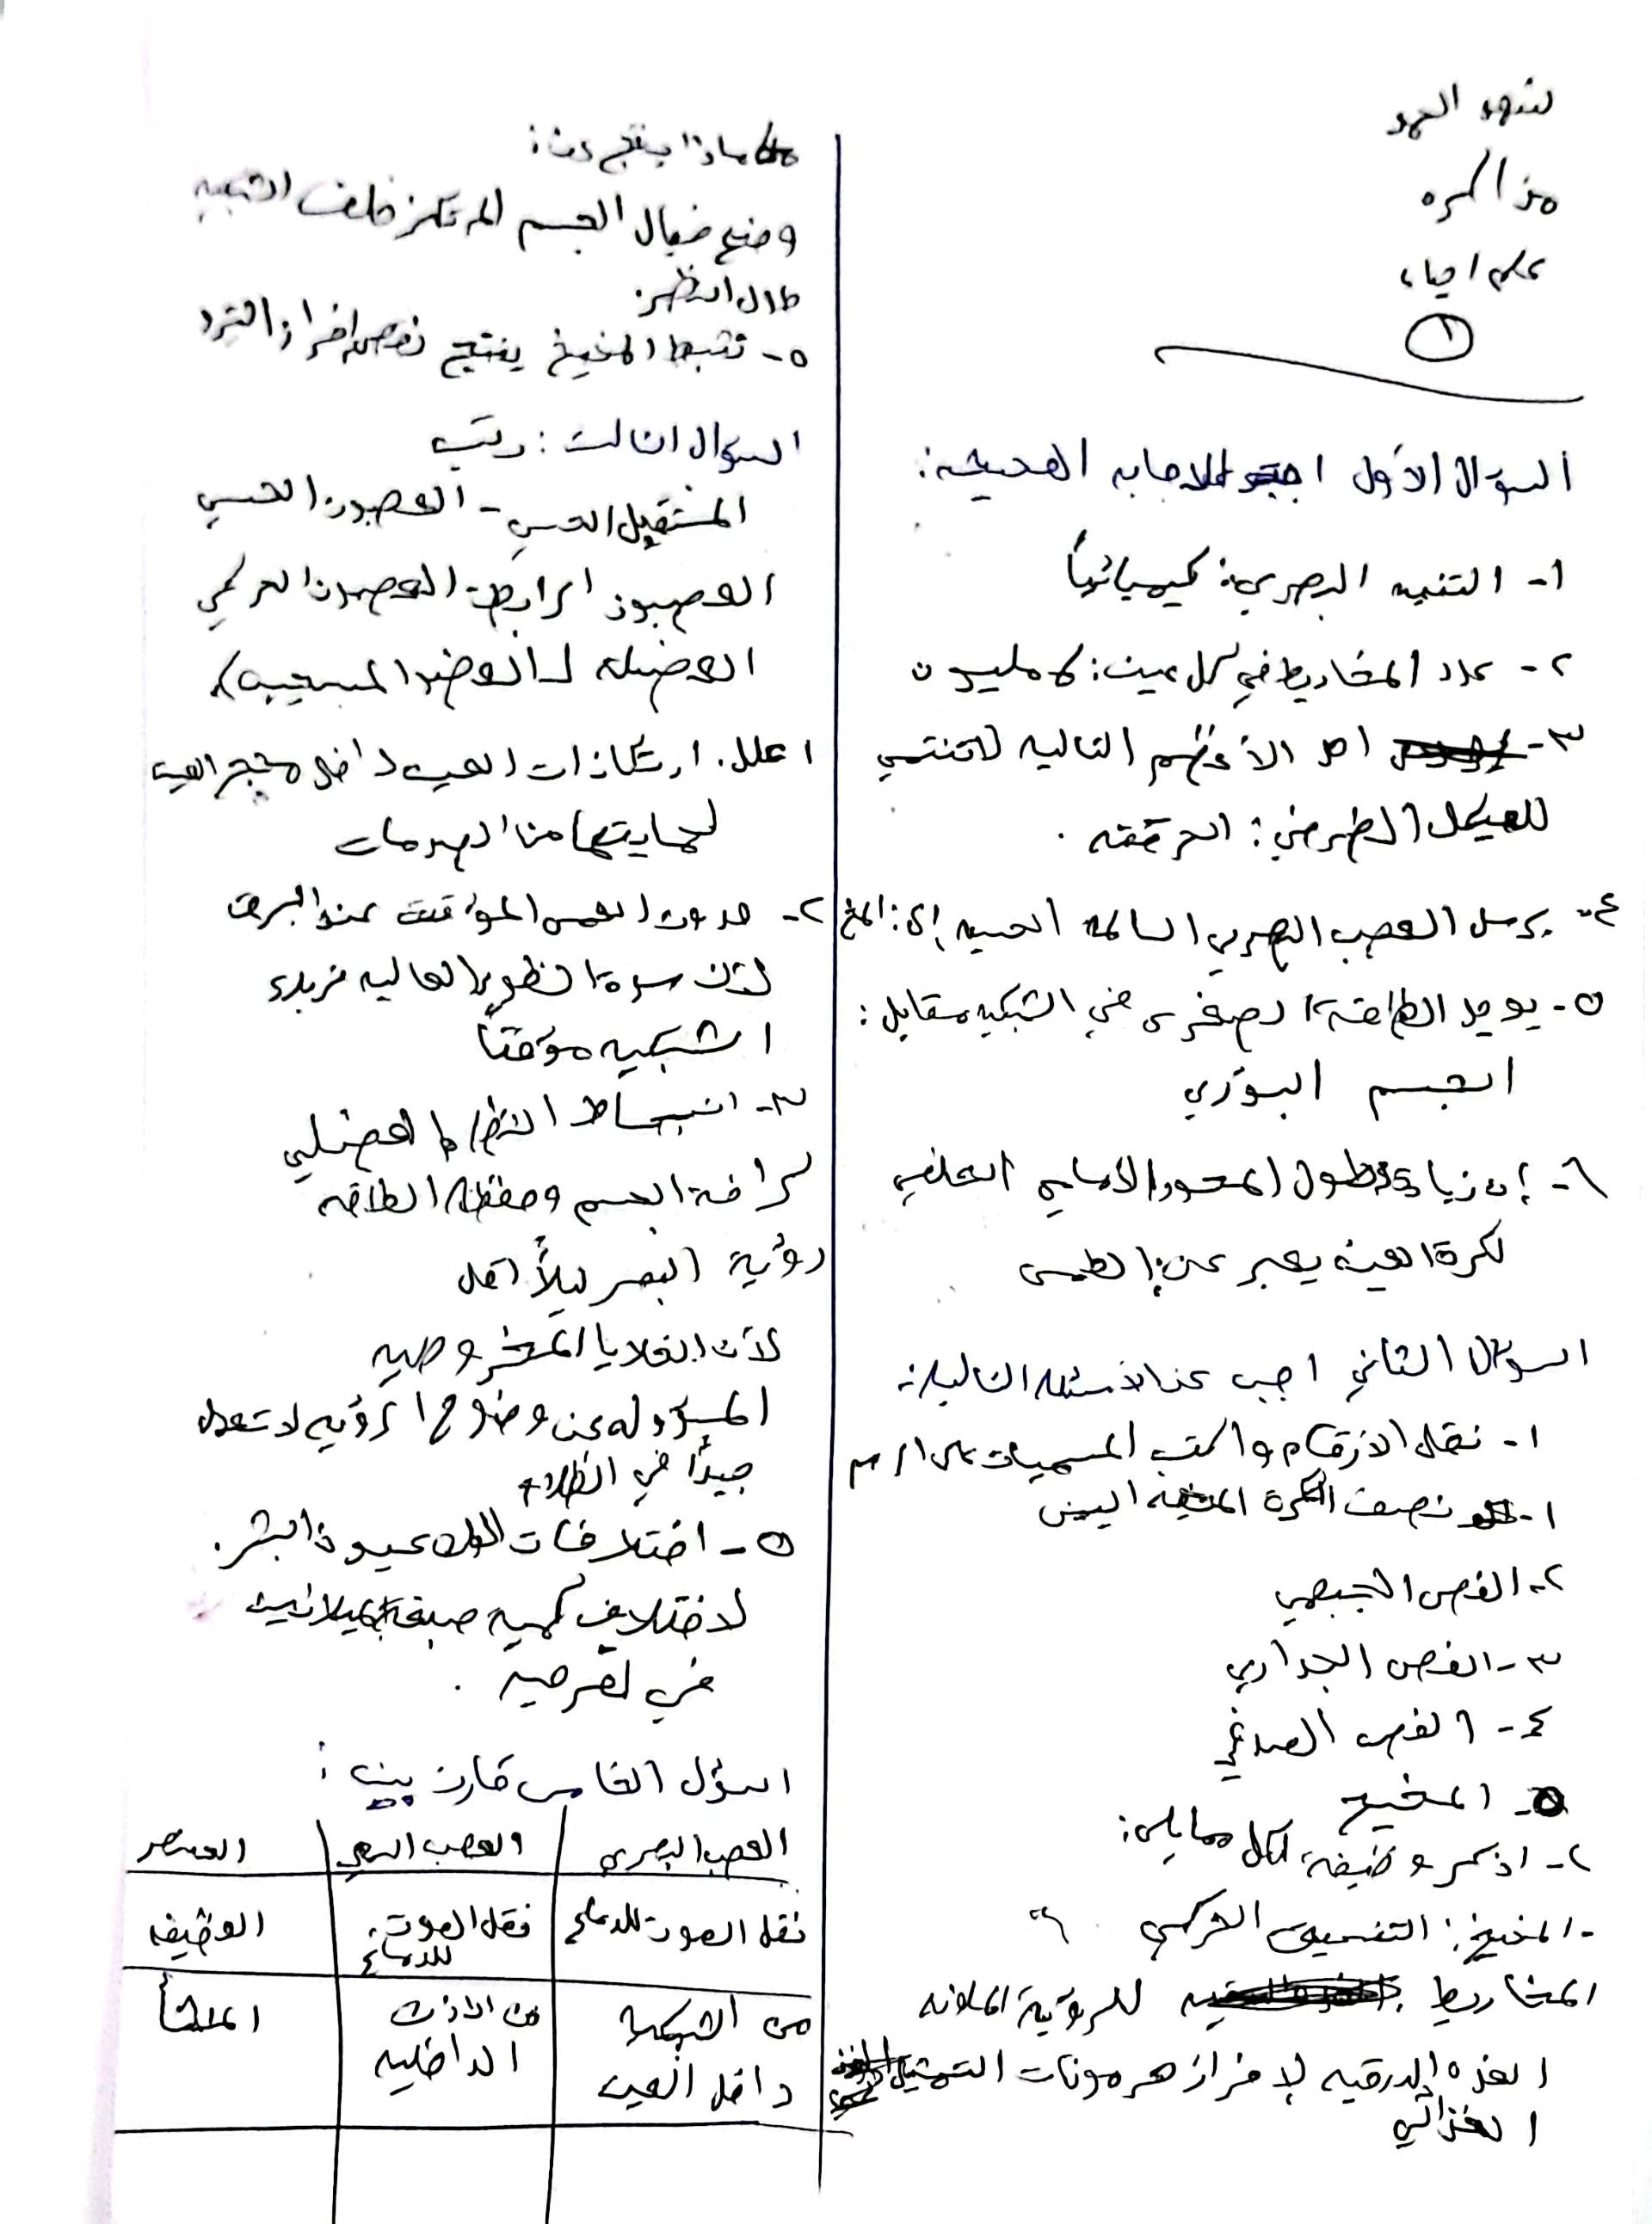 شهد الحمد
مذاكره
علم احياء
١
السؤال الأول اختر الاجابه الصحيحه:
١- التنبيه البصري: كيميائياً
٢- عدد المخاريط في كل عين: ٦ مليون
٣- احد الأعظم التاليه لا تنتمي
للهيكل الطرفي: الحرقفه .
٤- يرسل العصب البصري السياله الحسيه إلى: المخ
٥- يوجد الطاقة الصغرى في الشبكيه مقابل:
الجسم البؤري
٦- إن زيادة طول المحور الأمامي الخلفي
لكرة العين يعبر عن: الطمس
السؤال الثاني اجب عن الأسئله التاليه:
١- نقل الأرقام واكتب المسميات على الرسم
١- نصف الكرة المخيه اليمنى
٢- الفص الجبهي
٣- الفص الجداري
٤- الفص الصدغي
٥- المخيخ
٢- اذكر وظيفة لكل ممايلي:
- المخيخ: التنسيق الحركي
المخاريط للرؤية الملونه
الغده الدرقيه لإفراز هرمونات التمثيل
الغذائي
ماذا ينتج عن:
وضع خيال الجسم المرتكز خلف الشبكيه
طال النظر.
٥- تثبط المخيخ ينتج نقص افراز الغدد
السؤال الثالث: رتب
المستقبل الحسي - العصبون الحسي
العصبون الرابط - العصبون الحركي
العضله - العضو المستجيب
اعلل. ارتكازات العين داخل محجر العين
لحمايتها من الصدمات
٢- حدوث العمى المؤقت عند البرق
لأن سرعة الضوء العاليه تربك
الشبكيه مؤقتاً
٣- انبساط النظام العضلي
لراحة الجسم وحفظ الطاقه
رؤية البصر ليلاً اقل
لأن الخلايا المخروطيه
المسؤوله عن وضوح الرؤيه لا تعمل
جيداً في الظلام
٥- اختلافات الوان عيون البشر.
لاختلاف كمية صبغة الميلانين
في القزحيه .
السؤل الخامس قارن بين:
العصب البصري | العصب السمعي | العنصر
نقل الصوت للدماغ | نقل الصوت للدماغ | الوظيفه
من الشبكيه داخل العين | من الاذن الداخليه | المنشأ